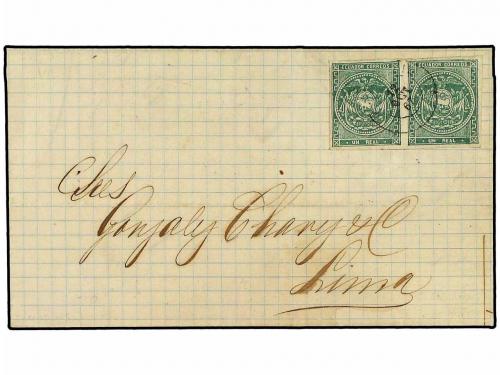 ECUADOR CORREOS ECUADOR CORREOS
UN REAL UN REAL
Sres
Gonzalez Chavez & C
Lima